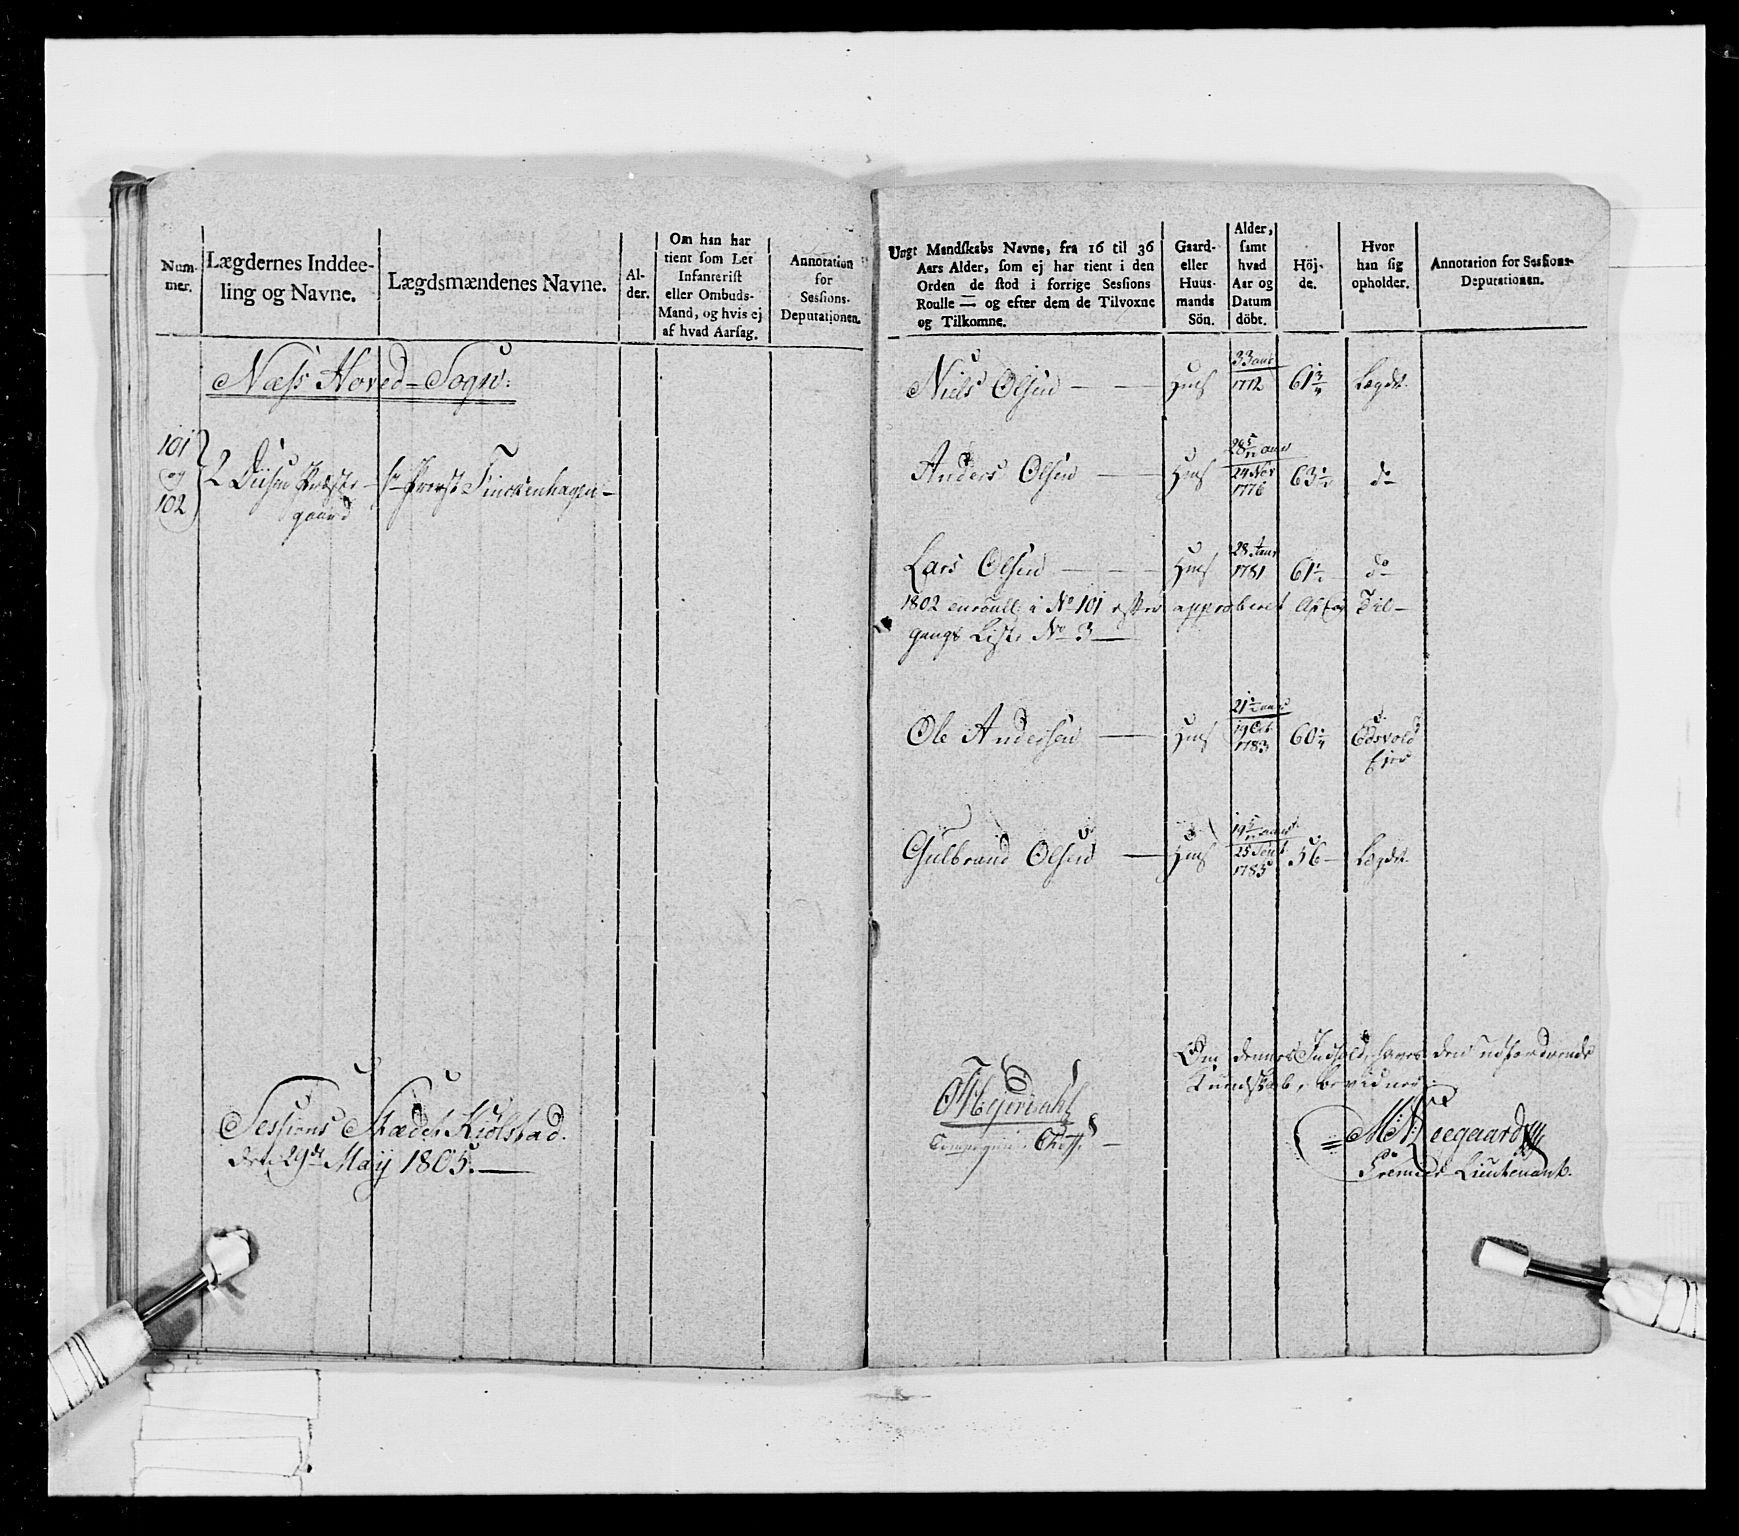 Num-
mer.
Lægdernes Inddee-
ling og Navne.
Lægdsmændenes Navne.
Al-
der.
Om han har
tient som Let
Infanterist
eller Ombuds-
Mand, og hvis ej
af hvad Aarsag.
Annotation
for
Sessions-
Deputationen.
Næss Hoved-Sogn:
101
og
102
2 Diisse Præste-
gaard
Hr Provst Finckenhagen
Sessions Stædet Kiølstad.
den 29de Maij 1805.
Ungt Mandskabs Navne, fra 16 til 36
Aars Alder, som ej har tient i den
Orden de stod i forrige Sessions
Roulle — og efter dem de Tilvoxne
og Tilkomne.
Gaard-
eller
Huus-
mands
Sön.
Alder,
samt
hvad
Aar og
Datum
döbt.
Höj-
de.
Hvor
han sig
opholder.
Annotation for Sessions-
Deputationen.
Niels Olsen — Huus 33 aar 1772 61 3/4 Lægdet
Anders Olsen — Huus 28 5/12 aar 24 Nov 1776 63 1/2 do
Lars Olsen — Huus 28 aar 1781 61 1/2 do
1802 enroull: i No 101 efter approberet Af og Til-
gangs Liste No 3
Ole Andersen — Huus 21 1/2 aar 19 Oct 1783 60 1/4 Edsvold
Gulbrand Olsen — Huus 19 5/12 aar 25 1785 56 Lægdet
Om dennes Indhold, haves den udfordrende
Kundskab, bevidner
Compagnie Chef
Premier Lieutenant.